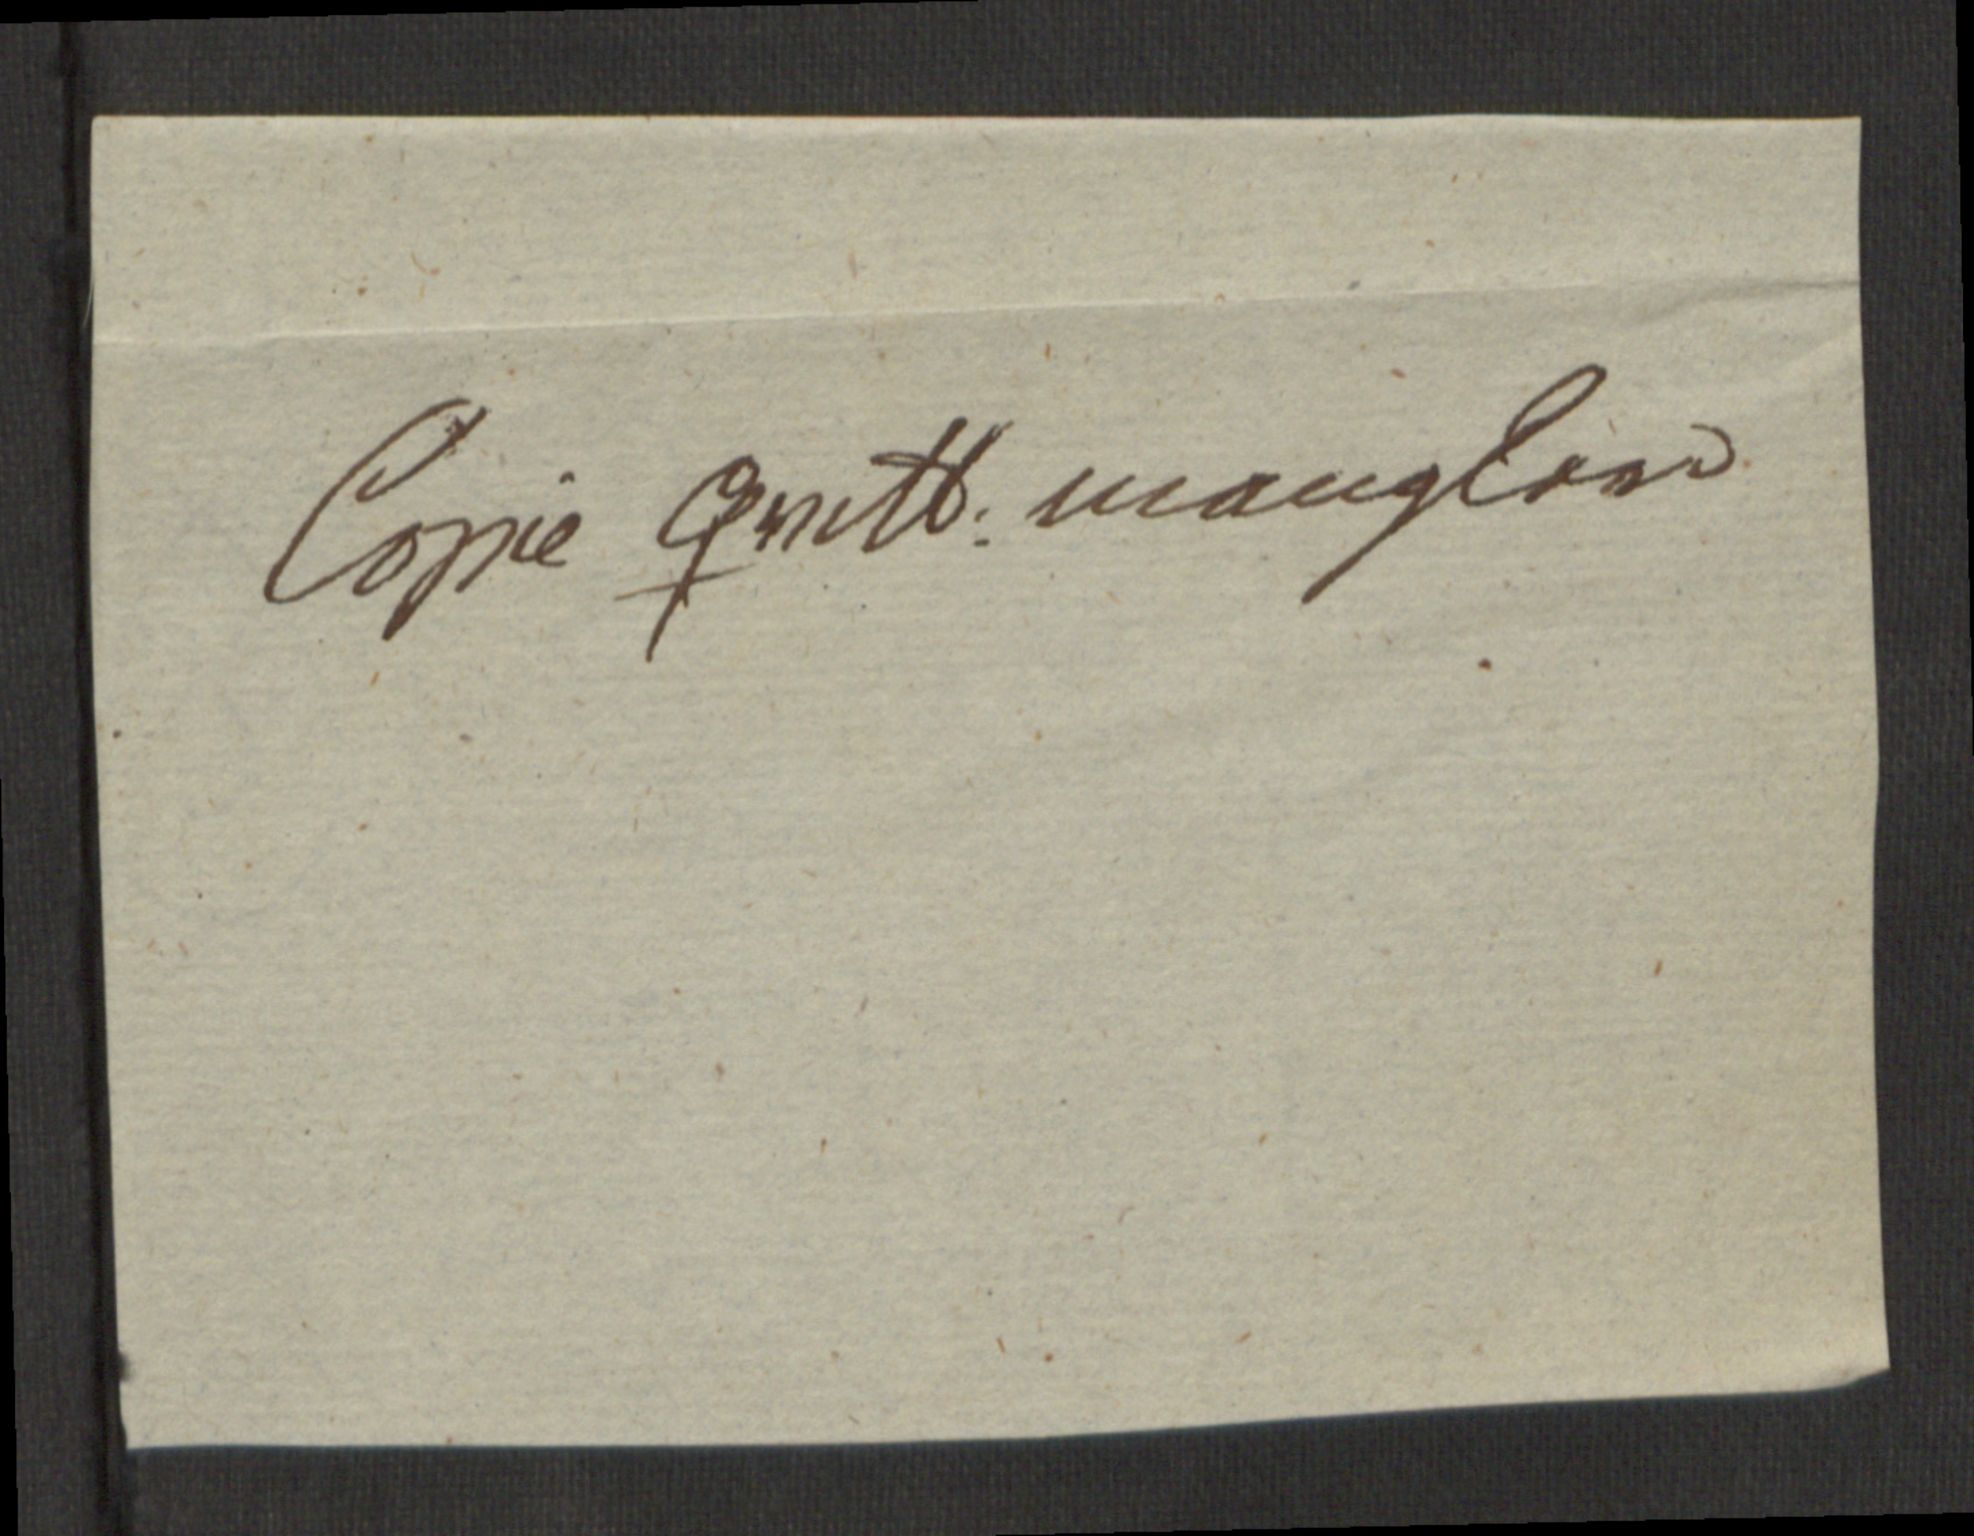 Copie Qvitt: manglerer